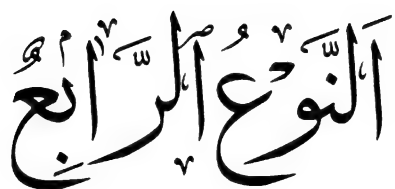 اَلنَّوْعُ الرَّابِعُ